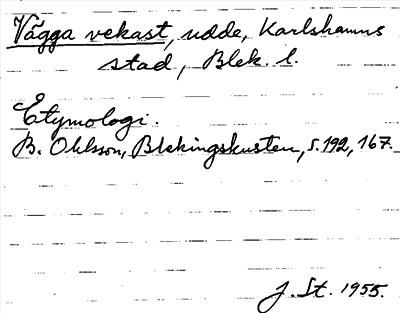 Vägga vekast, udde, Karlshamns
stad, Blek. l.
Etymologi.
B. Ohlsson, Blekingskusten, s. 192, 167.
J. St. 1955.